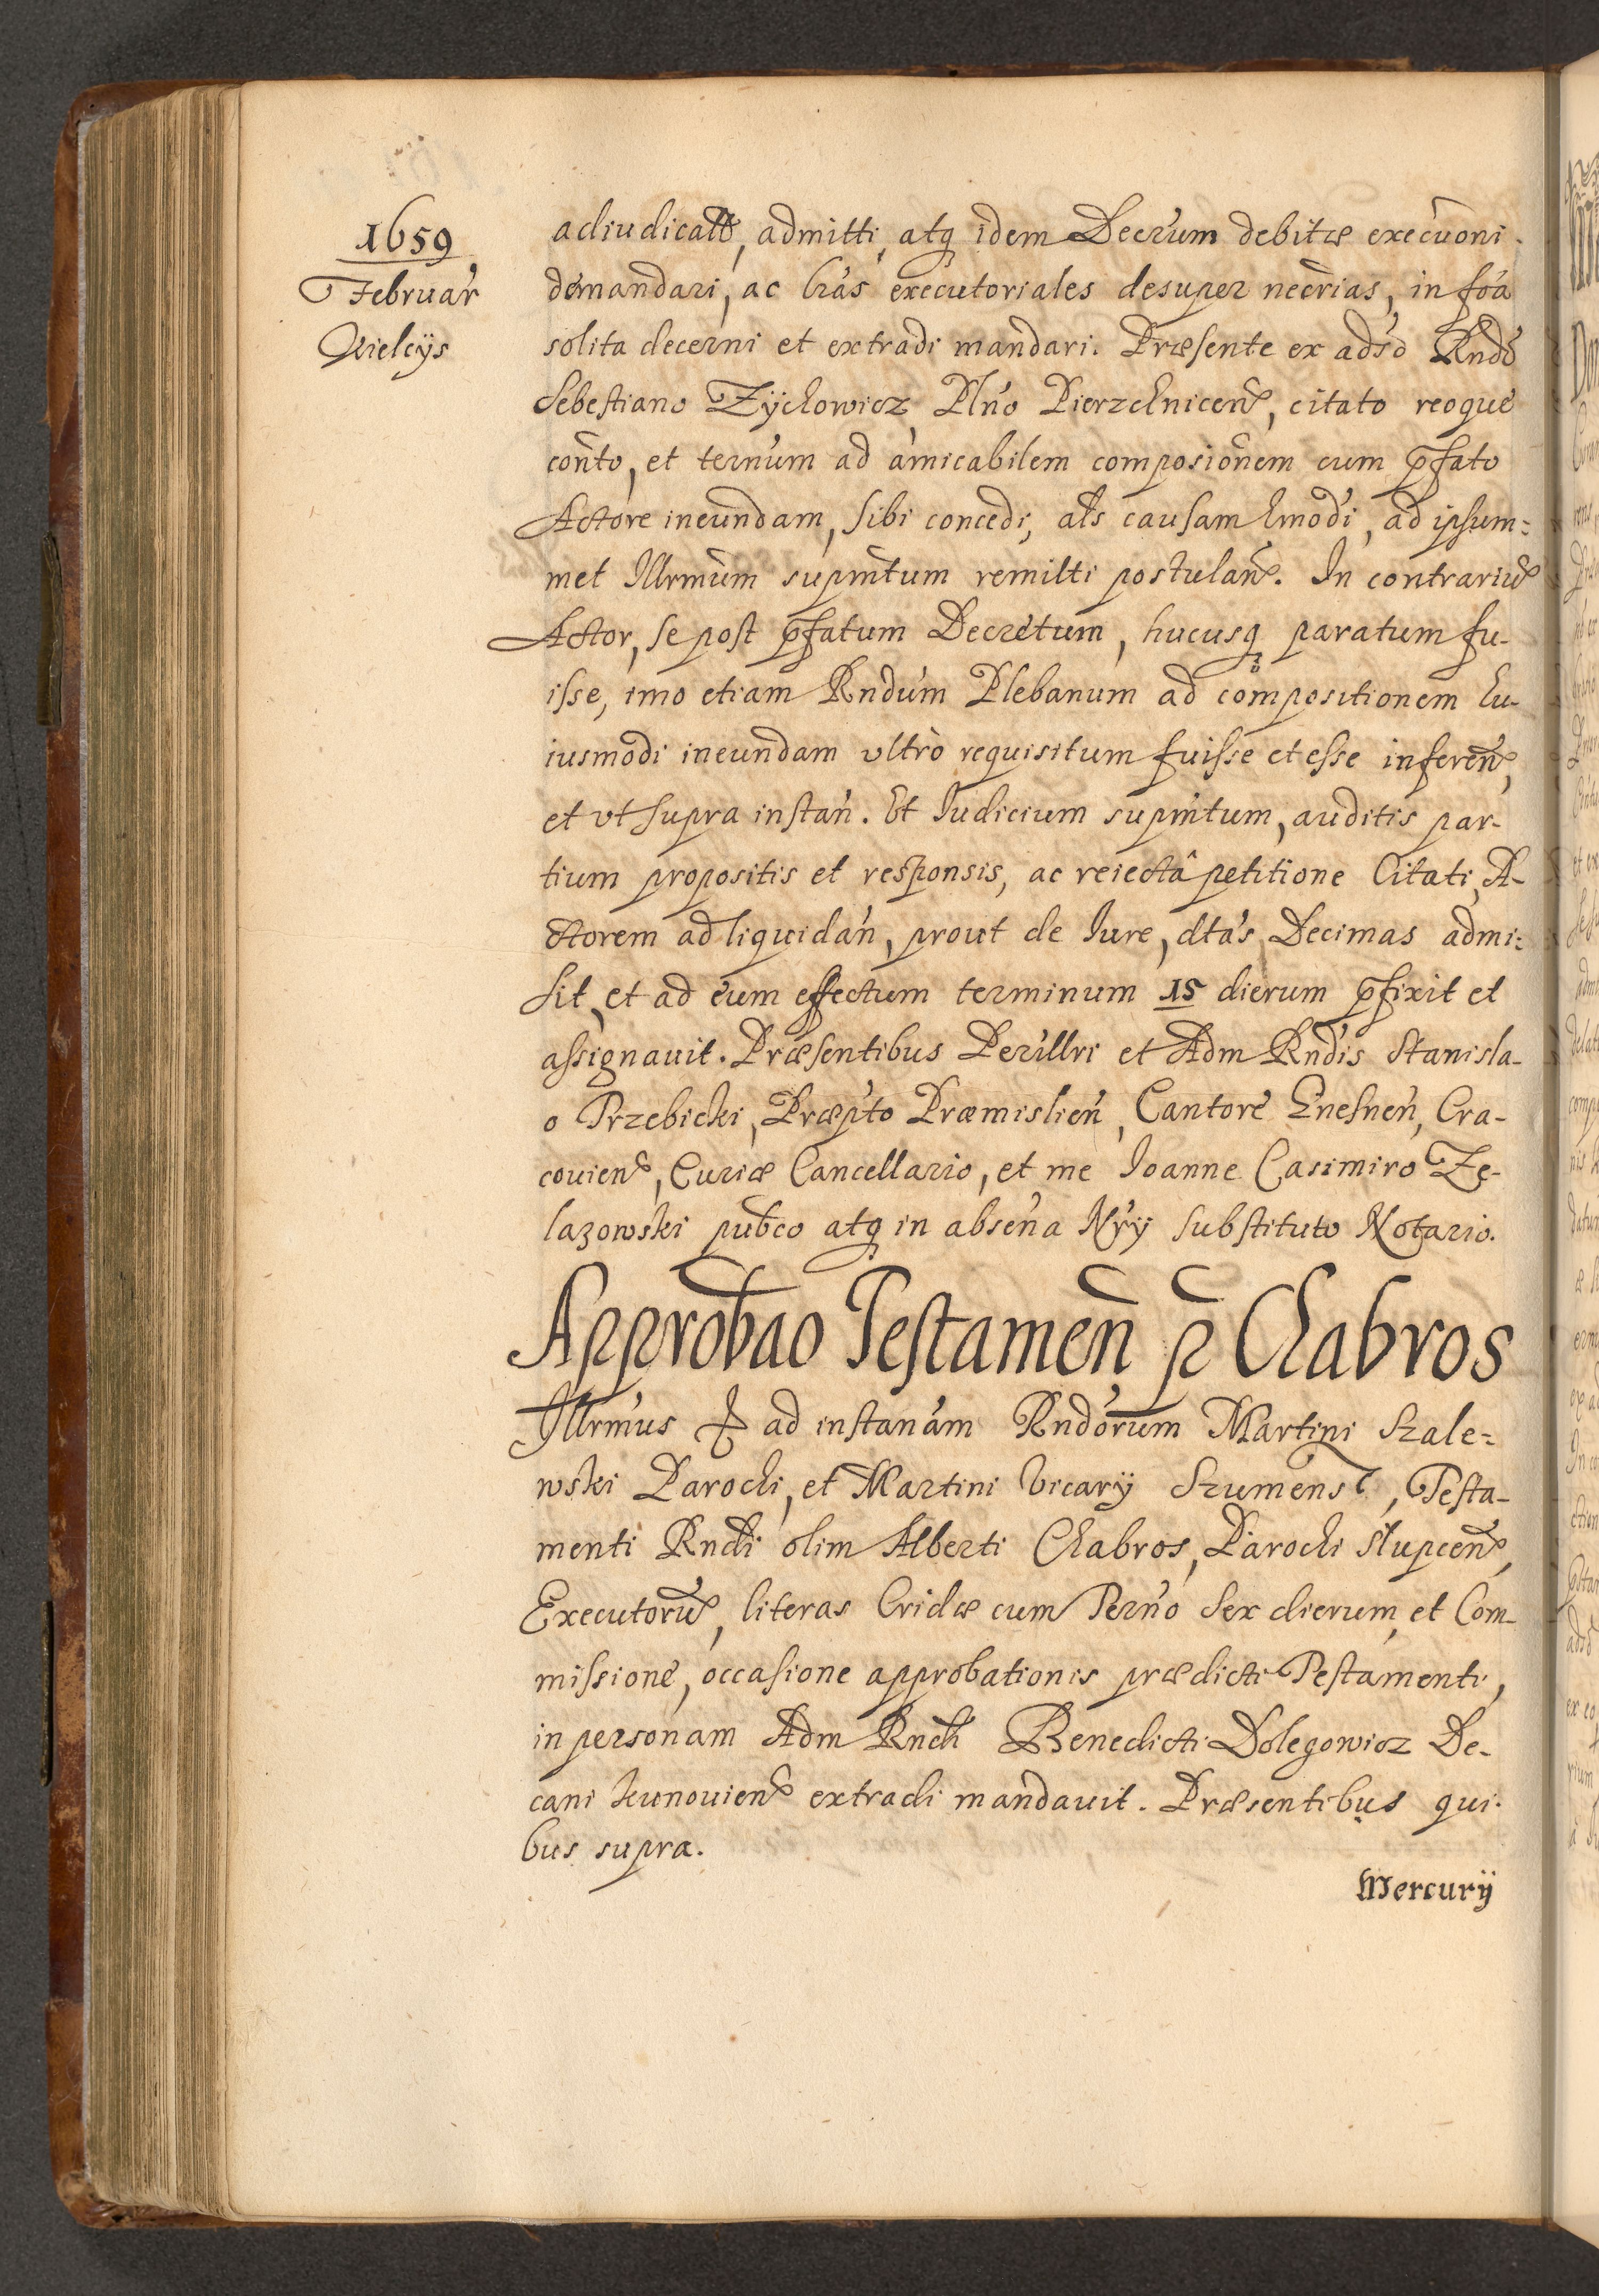 1659
Februar̃
Kielcÿs
adiudicatõ, admitti, atq̃ idem Decr̃um debitæ execũoni
demandari, ac l̃ras executoriales desuper necr̃ias, in fõa
solita decerni et extradi mandari. Præsente ex adṽso Rñdo
Sebestiano Zÿchowicz, Pl̃no Pierzchnicen̄, citato reoque
con̄to, et ter̃num ad amicabilem composiõnem cum p̃fato
Actore ineundam, sibi concedi, al̃s causam hm̃oди, ad ipsum=
met Illr̃mum supm̃tum remitti postulan̄. In contrariũ
Actor, se post p̃fatum Decretum, hucusq̃ paratum fu-
isse, imo etiam Rñdum Plebanum ad compositionem hu-
iusmodi ineundam vltrò requisitum fuisse et esse inferen̄,
et vt supra instan̄. Et Iudicium supm̃tum, auditis par-
tium propositis et responsis, ac reiectâ petitione Citati, A-
ctorem ad liquidan̄, prout de Iure, d̃tas Decimas admi=
sit, et ad eum effectum terminum 15 dierum p̃fixit et
assignauit. Præsentibus Perillr̃i et Adm Rñdis Stanisla-
o Przebicki, Præp̃to Præmislien̄, Cantore Gnesnen̄, Cra-
couien̄, Curiæ Cancellario, et me Ioanne Casimiro Ze-
lazowski pub̃co atq̃ in absen̄a Nr̃ÿ substituto Notario.
Approb̃ao Testamen̄ p̃ Chabros
Illr̃mus & ad instan̄am Rñdorum Martini Szale=
wski Parochi, et Martini Vicarÿ Szumens̄, Testa-
menti Rñdi olim Alberti Chabros, Parochi Slupcen̄,
Executorũ, literas Cridæ cum Ter̃no sex dierum, et Com-
missione, occasione approbationis prædicti Testamenti,
in personam Adm Rñdi Benedicti Dolegowicz De-
cani Kunouien̄ extradi mandauit. Præsentibus qui-
bus supra.
Mercurÿ